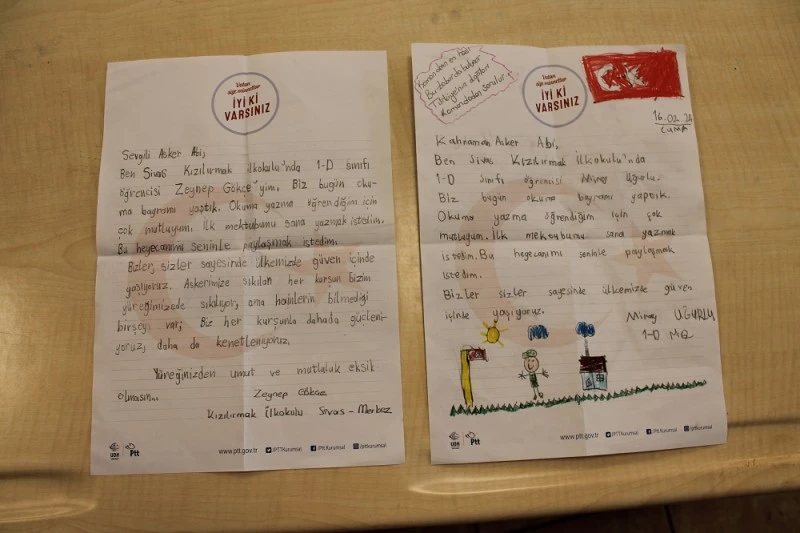 Vatan
size minnettar
İYİ Kİ
VARSINIZ
Sevgili Asker Abi,
Ben Sivas Kızılırmak ilkokulu'nda 1-D sınıfı
öğrencisi Zeynep Gökçe'yim. Biz bugün oku-
ma bayramı yaptık. Okuma yazma öğrendiğim için
çok mutluyum. İlk mektubumu sana yazmak istedim.
Bu heyecanımı seninle paylaşmak istedim.
Bizler, sizler sayesinde ülkemizde güven içinde
yaşıyoruz. Askerimize sıkılan her kurşun bizim
yüreğimizede sıkılıyor, ama hainlerin bilmediği
birşey var; Biz her kurşunla dahada güçleni-
yoruz, daha da kenetleniyoruz.
Yüreğinizden umut ve mutluluk eksik
olmasın...
Zeynep Gökçe
Kızılırmak İlkokulu Sivas-Merkez
Ptt
www.ptt.gov.tr
/PTTKurumsal
/PttKurumsal
/pttkurumsal
Vatan
size minnettar
İYİ Kİ
VARSINIZ
16.02.24
CUMA
Kahraman Asker Abi,
Ben Sivas Kızılırmak İlkokulu'nda
1-D sınıfı öğrencisi Miraç Uğurlu.
Biz bugün okuma bayramı yaptık.
Okuma yazma öğrendiğim için çok
mutluyum. İlk mektubumu sana yazmak
istedim. Bu heyecanımı seninle paylaşmak
istedim.
Bizler sizler sayesinde ülkemizde güven
içinde yaşıyoruz.
Miraç UĞURLU
1-D
Ptt
www.ptt.gov.tr
/PTTKurumsal
/PttKurumsal
/pttkurumsal